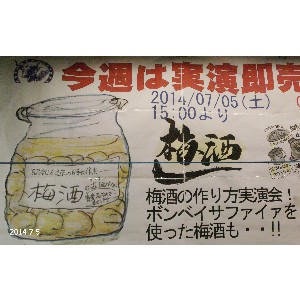 今週は実演即売
2014/07/05(土)
15:00より
梅酒
梅酒
梅酒の作り方実演会！
ボンベイサファイアを
使った梅酒も・・!!
2014 7 5